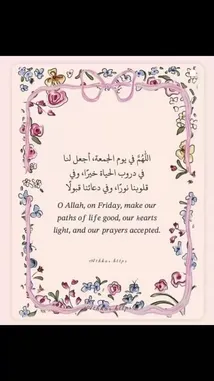 اللَّهُمَّ في يوم الجمعة، أجعل لنا
في دروب الحياة خيرًا، وفي
قلوبنا نورًا، وفي دعائنا قبولًا
O Allah, on Friday, make our
paths of life good, our hearts
light, and our prayers accepted.